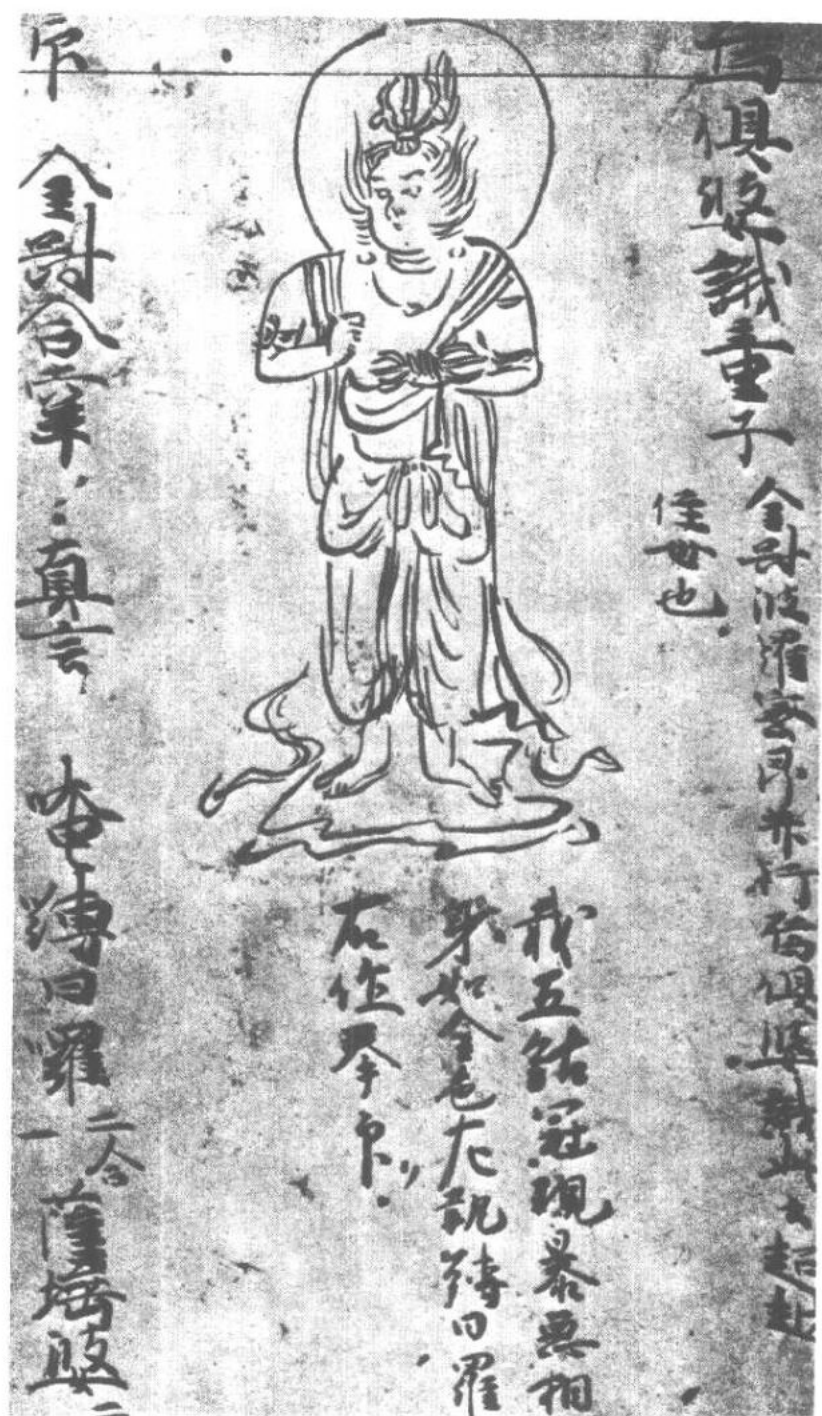 烏俱婆誐童子
金剛波羅蜜 行烏俱婆誐此云超
住世也
我五鈷冠現暴惡相
身如金色左執縛日羅
右作拳印
印 金剛合掌 真言 唵縛日囉二合一薩埵